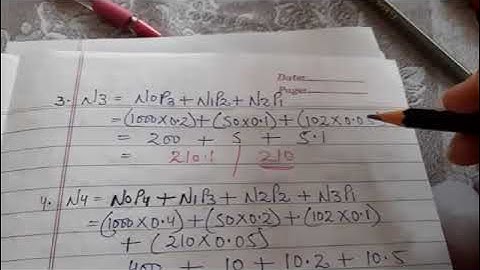 Date:
Page:
3. N3 = N0P3 + N1P2 + N2P1
= (1000×0.2) + (50×0.1) + (102×0.05
= 200 + 5 + 5.1
= 210.1 / 210
4. N4 = N0P4 + N1P3 + N2P2 + N3P1
= (1000×0.4) + (50×0.2) + (102×0.1)
+ (210×0.05)
400 + 10 + 10.2 + 10.5